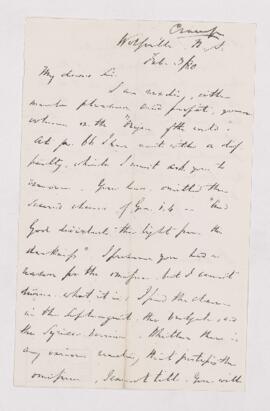 Wolfville N. S.
Feb. 3/80
My dear Sir.
I am reading, with
much pleasure and profit, your
volume on the "Origin of the world".
At p. 66 I have met with a dif-
ficulty, which I must ask you to
remove. You have omitted the
second clause of Gen. i. 4 - "And
God divided the light from the
darkness". I presume you had a
reason for the omission, but I cannot
divine what it is. I find the clause
in the Septuagint, the Vulgate, and
the Syriac version. Whether there is
any various reading that justifies the
omission, I cannot tell. You will